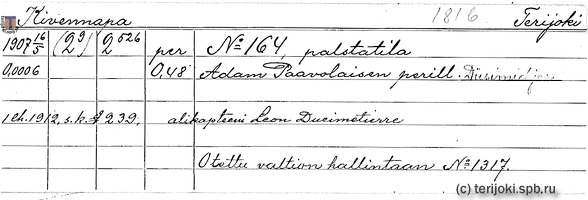 Kivennapa 1816 Terijoki
1907 16/5 (2⁹) 2⁵²⁶ per No 164, palstatila
0,0006 0,48 Adam Paavolaisen perill.
1 ch. 1912, s.k. § 239, alikapteeni Leon Ducimetierre
Otettu valtion hallintaan No 1317.
(c) terijoki.spb.ru